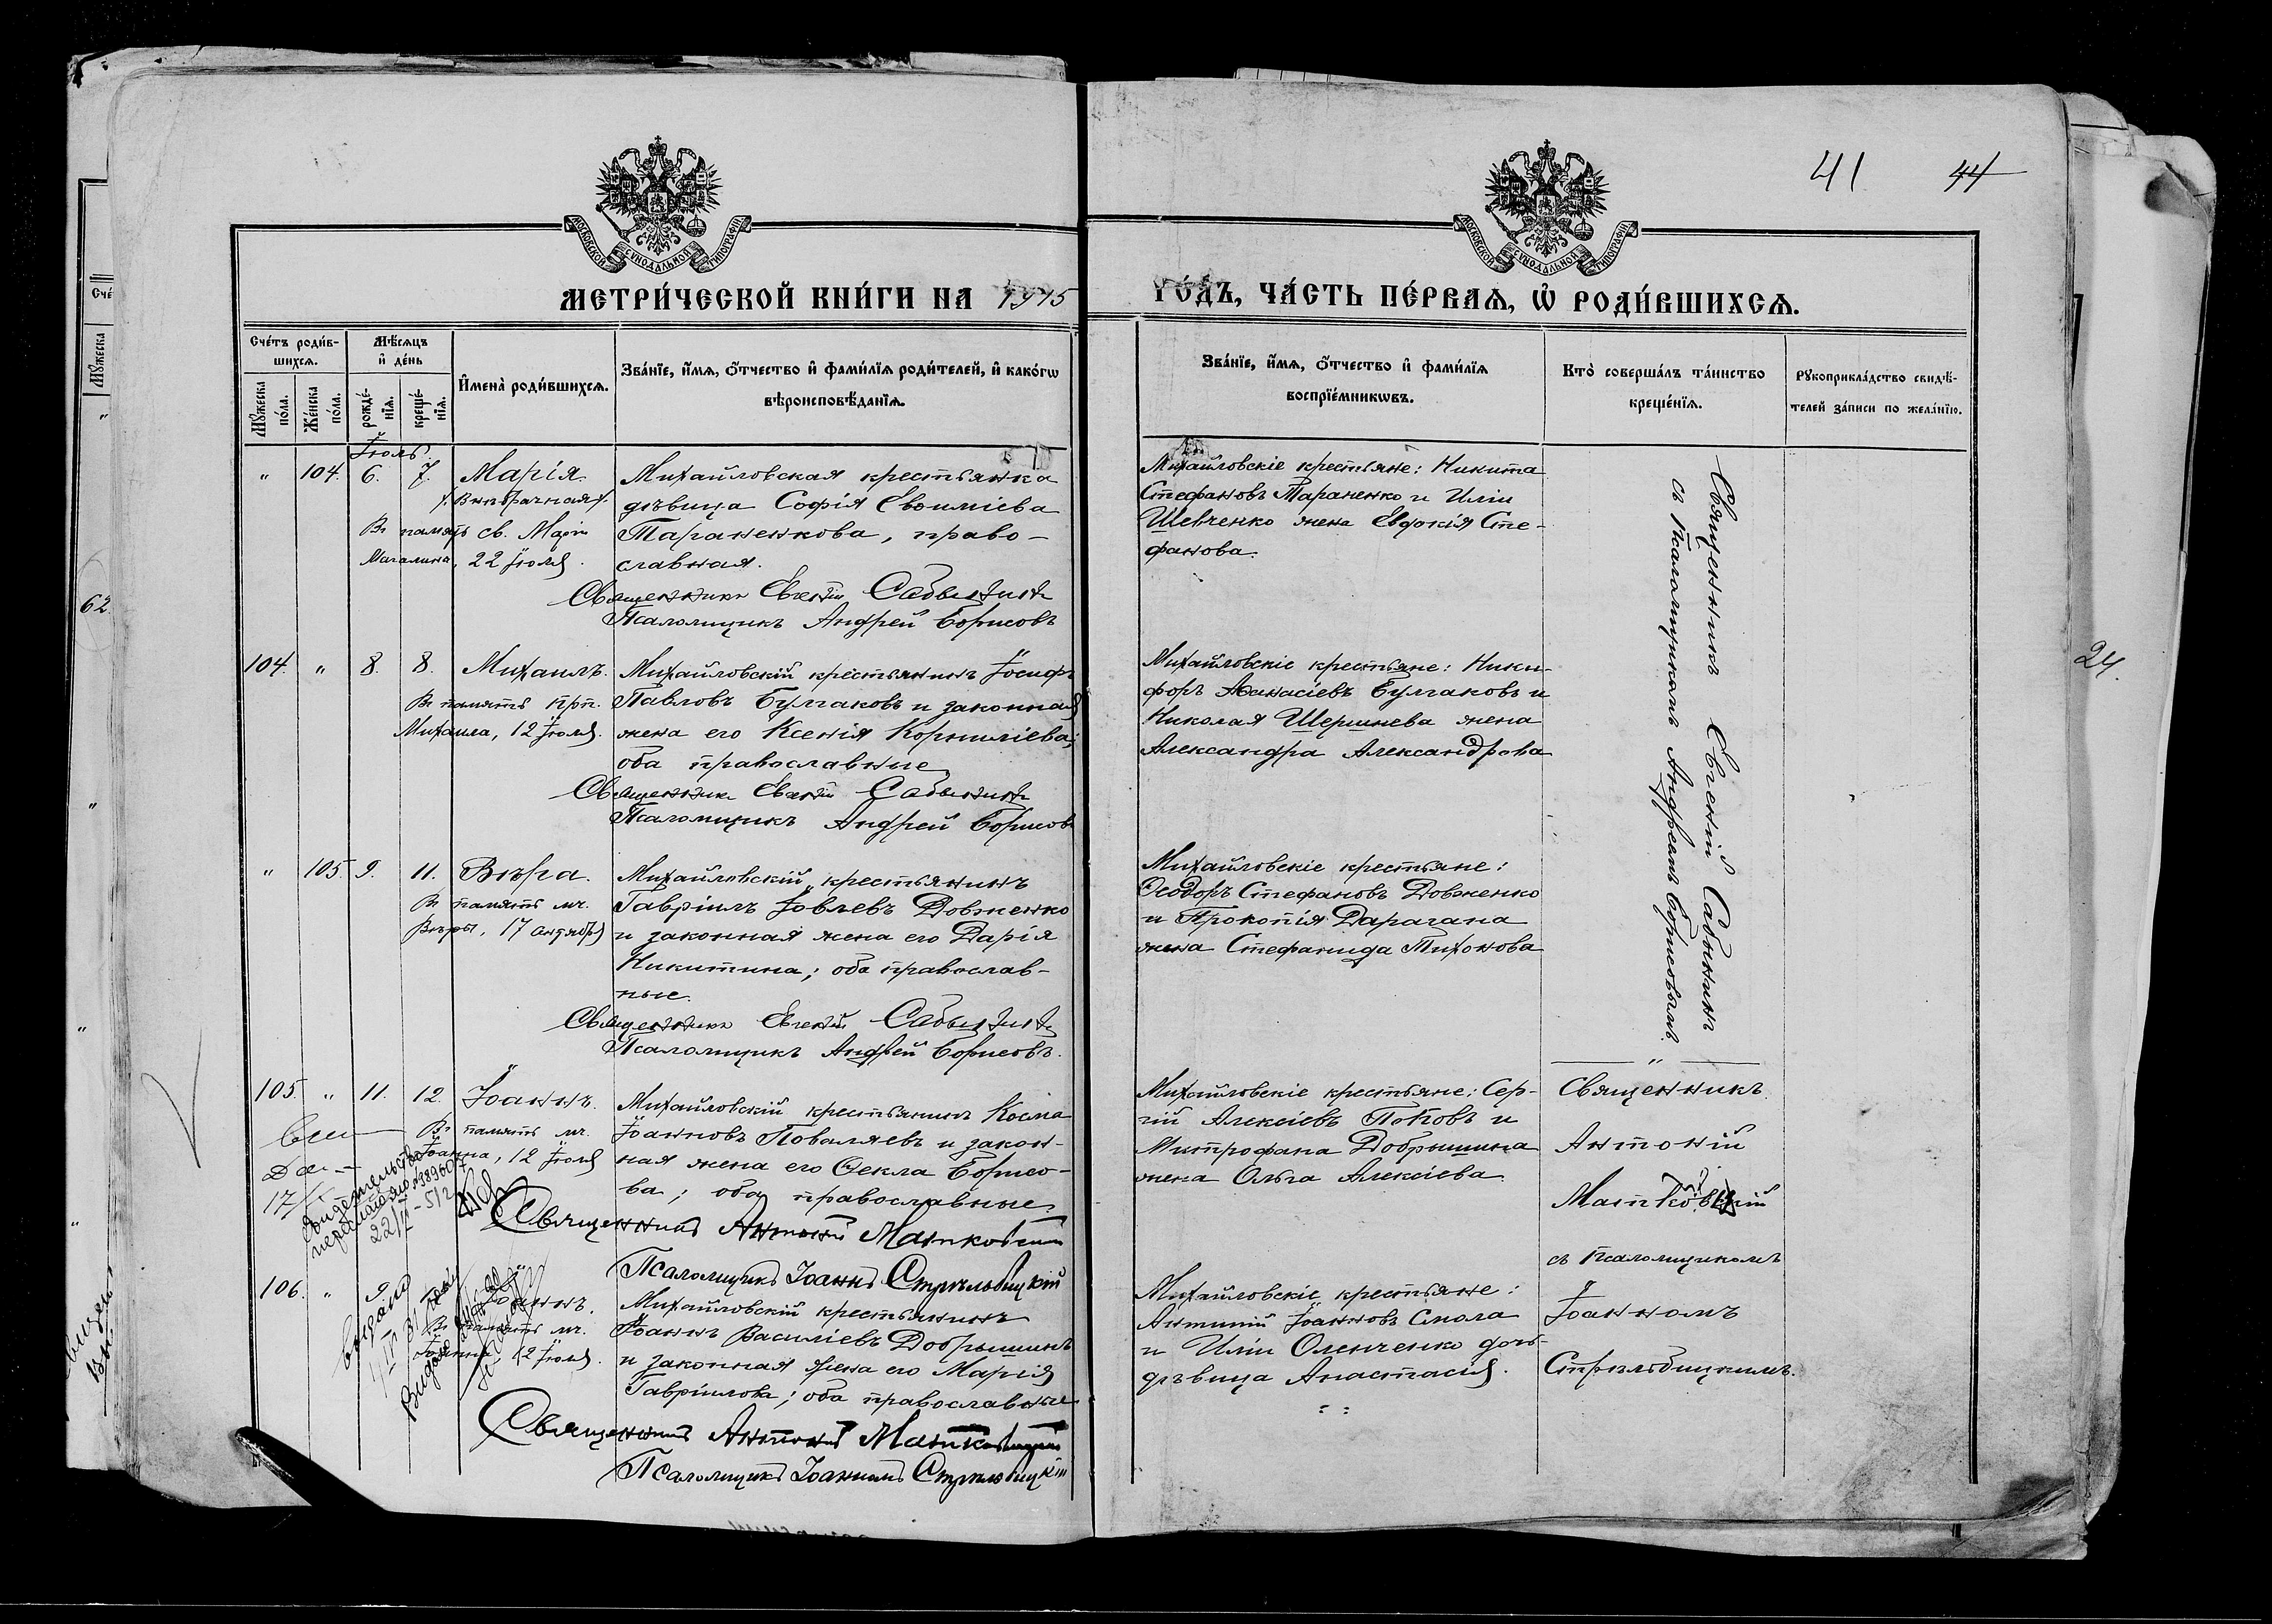 41 44
МОСКОВСКОЙ СѴНОДАЛЬНОЙ ТИПОГРАФІИ
МОСКОВСКОЙ СѴНОДАЛЬНОЙ ТИПОГРАФІИ
МЕТРИ́ЧЕСКОЙ КНИ́ГИ НА 1915
ГО́ДЪ, ЧА́СТЬ ПЕ́РВАѦ, Ѡ РОДИ́ВШИХСѦ.
Сче́тъ роди́в-
шихсѧ.
Мѣ́сѧцъ
и҆ де́нь
Мꙋ́жеска по́ла.
Же́нска по́ла.
рожде́-нїѧ.
креще́-нїѧ.
И҆мена̀ роди́вшихсѧ.
Зва́нїе, и҆́мѧ, ѻ҆́тчество и҆ фами́лїѧ роди́телей, и҆ како́гѡ
вѣроисповѣ́данїѧ.
Зва́нїе, и҆́мѧ, ѻ҆́тчество и҆ фами́лїѧ
воспрїе́мникѡвъ.
Кто̀ соверша́лъ та́инство
креще́нїѧ.
Рꙋкоприкла́дство свидѣ́-
телей за́писи по жела́нїю.
Іюль.
" 104. 6. 7. Марія
/. Внѣбрачная /.
Въ память св. Маріи
Магалина, 22 Іюля.
Михайловская крестьянка
дѣвица Софія Евѳиміева
Тараненкова, право-
славная.
Священникъ Евгеній Сабынинъ
Псаломщикъ Андрей Борисовъ
Михайловскіе крестьяне: Никита
Стефановъ Тараненко и Иліи
Шевченко жена Евдокія Сте-
фанова.
Священникъ Евгеній Сабынинъ
съ Псаломщикомъ Андреемъ Борисовымъ.
104. " 8. 8. Михаилъ.
Въ память прп.
Михаила, 12 Іюля.
Михайловскій крестьянинъ Іосифъ
Павловъ Булгаковъ и законная
жена его Ксенія Корниліева;
оба православные
Священникъ Евгеній Сабынинъ
Псаломщикъ Андрей Борисовъ
Михайловскіе крестьяне: Ники-
форъ Аѳанасіевъ Булгаковъ и
Николая Шершнева жена
Александра Александрова
" 105. 9. 11. Вѣра.
Въ память мч.
Вѣры, 17 сентября
Михайловскій крестьянинъ
Гавріилъ Іовлевъ Довженко
и законная жена его Дарія
Никитина; оба православ-
ные.
Священникъ Евгеній Сабынинъ
Псаломщикъ Андрей Борисовъ.
Михайловскіе крестьяне:
Ѳеодоръ Стефановъ Довженко
и Прокопія Дарагана
жена Стефанида Тихонова
105. " 11. 12. Іоаннъ.
Въ память мч.
Іоанна, 12 Іюля
Михайловскій крестьянинъ Косма
Іоанновъ Поваляевъ и закон-
ная жена его Ѳекла Борисо-
ва; оба православные.
Священникъ Антоній Матковскій
Псаломщикъ Іоаннъ Стрѣльбицкій
Михайловскіе крестьяне: Сер-
гій Алексіевъ Поповъ и
Митрофана Добрышина
жена Ольга Алексіева
Священникъ
Антоній
Матковскій
съ Псаломщикомъ
Іоанномъ
Стрѣльбицкимъ.
106. " 9. Іоаннъ.
Въ память мч.
Іоанна, 12 Іюля.
Михайловскій крестьянинъ
Іоаннъ Василіевъ Добрышинъ
и законная жена его Марія
Гавріилова; оба православные
Священникъ Антоній Матковскій
Псаломщикъ Іоаннъ Стрѣльбицкій
Михайловскіе крестьяне:
Антипій Іоанновъ Смола
и Иліи Оленченко дочь
дѣвица Анастасія.
62.
24.